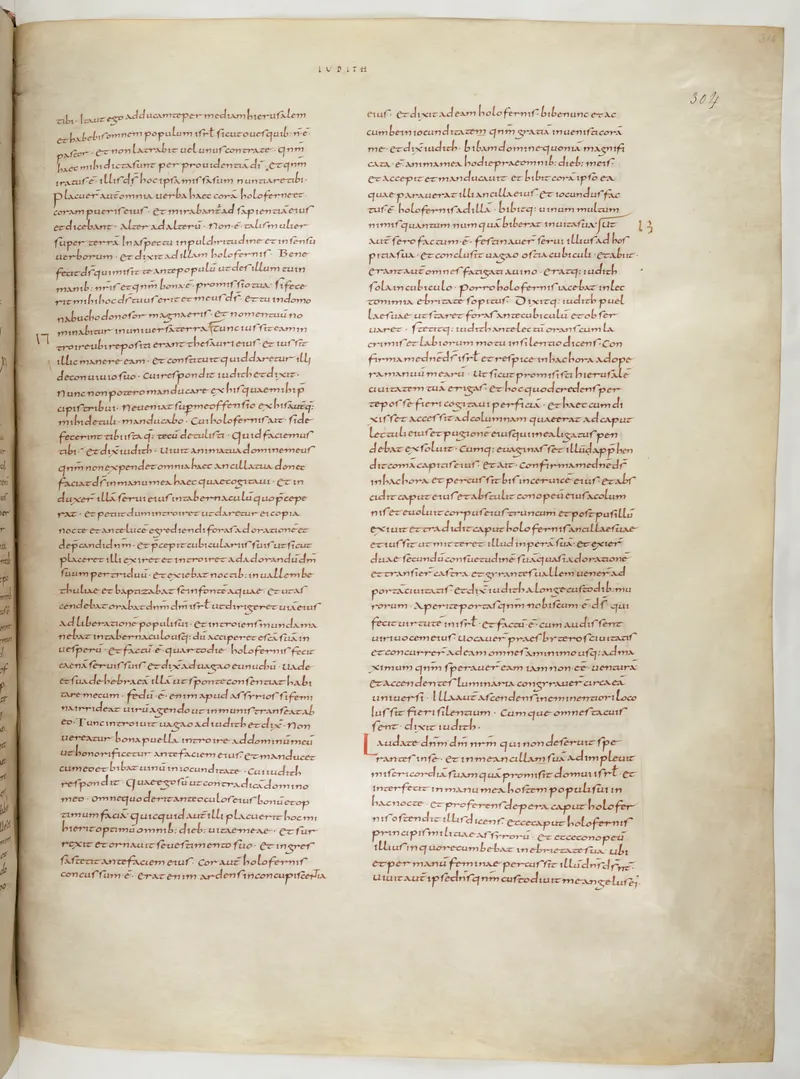 IUDITH
304
tibi · et aut ego adducam te per mediam hierusalem
et habebis omnem populum isrł sicut oues quib; n̄ ē
pastor · et non latrabit uel unus contra te · qnm̄
haec mihi dicta sunt per prouidentiā dī · et qnm̄
iratus ē illis dś hoc ipsū missa sum nuntiare tibi ·
Placuer̄ aut̄ omnia uerba haec corā holoferne et
coram pueris eius · et mirabant̄ ad sapientiā eius
et dicebant · alter ad alterū · Non ē talis mulier
super terrā In aspectu in pulchritudine et in sensu
uerborum · et dixit ad illam holofernis · Bene
fecit dś qui misit te ante populū ut des illum tu in
manib: nr̄is et qnm̄ bona ē promissio tua · si fece
rit mihi hoc dś tuus erit et meus dś · et tu in domo
nabuchodonosor magna eris · et nomen tuū no
minabitur in uniuersa terra Tunc iussit eam in
troire ubi repositi erant thesauri eius · et iussit
illic manere eam · et constituit quid daretur illi
de conuiuio suo · Cui respondit iudith et dixit ·
Nunc non potero manducare ex his quae mihi p̄
cipis tribui · Ne ueniat sup me offensio ex his aut̄ q:
mihi detuli · manducabo · Cui holofernis ait · si de
fecerint tibi ista q: tecū detulisti · quid faciemus
tibi · et dix̄ iudith · Uiuit anima tua domine meus
qnm̄ non expendet omnia haec ancilla tua donec
faciat dś in manu mea haec quae cogitaui · et in
duxer̄ illā serui eius in tabernaculū quo p̄cepe
rat · et petit dum introiret ut daretur ei copia
nocte et ante lucē egrediendi foras ad oratione et
dep̄candi dnm̄ · et p̄cepit cubiculariis suis ut sicut
placeret illi exiret et introiret ad adorandū dm̄
suum per triduū · et exiebat noctib: in uallem be
thuliae et baptizabat se in fonte aquae · et ut as
cendebat orabat dnm̄ dm̄ isrł ut dirigeret uiā eius
ad liberationē populi sui · et introiens munda ma
nebat in tabernaculo usq: dū acciperet escā suā in
uesperū · et factū ē · quarto die holofernis fecit
caenā seruis suis et dix̄ ad uagao eunuchū · Uade
et suade hebraeā illā ut sponte consentiat habi
tare mecum · foedū ē enim apud assyrios si femi
na irrideat uirū agendo ut inmunis transeat ab
eo · Tunc introiuit uagao ad iudith et dix̄ · Non
uereatur bona puella introire ad dominū meū
ut honorificetur ante faciem eius et manducet
cum eo et bibat uinū in iocunditate · Cui iudith
respondit · Quae ego sū ut contradicā domino
meo · omne quod erit ante oculos eius bonū et op
timum faciā quicquid aut̄ illi placuerit hoc mi
hi erit optimū omnib: dieb: uitae meae · et sur
rexit et ornauit se uestimento suo · et ingres
sa stetit ante faciem eius · Cor aut̄ holofernis
concussum ē · erat enim ardens in concupiscentia
eius · et dixit ad eam holofernis · bibe nunc et ac
cumbe in iocunditatem qnm̄ gratiā inuenisti corā
me · et dix̄ iudith · bibam domine quoniā magnifi
cata ē anima mea hodie prae omnib: dieb: meis ·
et accepit et manducauit et bibit corā ipso ea
quae parauerat illi ancilla eius et iocundus fac
tus ē holofernis ad illā · bibitq: uinum multum
nimis quantum numquā biberat in uita sua Ut
aut̄ sero factum ē · festinauer̄ serui illius ad hos
pitia sua · et conclusit uagao ostia cubiculi et abiit ·
erant aut̄ omnes fatigati a uino · eratq: iudith
sola in cubiculo · porro holofernis iacebat in lec
to nimia ebrietate sopitus · Dixitq: iudith puel
lae suae ut staret foras ante cubiculū et obser
uaret · stetitq: iudith ante lectū orans cum la
crimis et labiorum motu in silentio dicens · Con
firma me dnē dś isrł et respice in hac hora ad ope
ra manuū mearū · Ut sicut promisisti hierusalē
ciuitatem tuā erigas · et hoc quod credens per
te posse fieri cogitaui perficiā · et haec cum di
xisset accessit ad columnam quae erat ad caput
lectuli eius et pugione eius qui in ea ligatus pen
debat exsoluit · Cumq: euaginasset illū dapp̄hen
dit comā capitis eius · et ait · Confirma me dnē dś
in hac hora et percussit bis in ceruice eius · et abs
cidit caput eius et abstulit conopeū eius a colum
nis et euoluit corpus eius truncum et post pusillū
exiuit et tradidit caput holofernis ancillae suae
et iussit ut mitteret illud in perā suā · et exier̄
duae secundū consuetudinē suā quasi ad orationē
et transier̄ castra et gyrantes uallem uener̄ ad
portā ciuitatis et dix̄ iudith a longe custodib: mu
rorum · Aperite portas qnm̄ nobiscum ē dś qui
fecit uirtutē in isrł · et factū ē cum audissent
uiri uocem eius uocauer̄ praesbyteros ciuitatis
et concurrer̄ ad eam omnes a minimo usq: ad ma
ximum qnm̄ sperauer̄ eam iam non eē uenturā
et accendentes luminaria congyrauer̄ circa eā
uniuersi · Illa aut̄ ascendens in eminentiori loco
iussit fieri silentium · Cumque omnes tacuis
sent · dixit iudith ·
Laudate dnm̄ dm̄ nrm̄ qui non deseruit spe
rantes in se · et in me ancillam suā adimpleuit
misericordiā suam quā promisit domui isrł · et
interfecit in manu mea hostem populi sui in
hac nocte · et proferens de pera caput holofer
nis ostendit illis dicens · ecce caput holofernis
principis militiae assyriorū · et ecce conopeū
illius in quo recumbebat in ebrietate sua · ubi
et per manū feminae percussit illū dns dś nr̄ ·
Uiuit aut̄ ipse dns qnm̄ custodiuit me angelus ei;